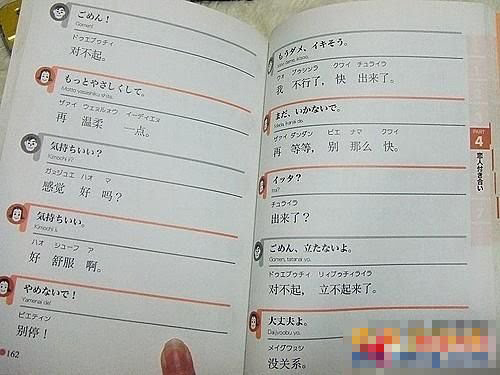 ごめん！
Gomen!
ドゥエブゥチィ
对不起。
もっとやさしくして。
Motto yasashiku shite.
ヅァイ ウェンロォウ イーディエン
再 温柔 一点。
気持ちいい？
Kimochi ii?
ガンジュエ ハオ マ
感觉 好 吗？
気持ちいい。
Kimochi ii.
ハオ シューフ ア
好 舒服 啊。
やめないで！
Yamenai de!
ビエティン
别停！
162
もうダメ、イキそう。
ウオ ブゥシンラ クワイ チュライラ
我 不行了， 快 出来了。
まだ、いかないで。
Mada, ikanai de.
ヅァイ ダンダン ビエ ナマ クワイ
再 等等， 别 那么 快。
イッタ？
Itta?
チュライラ
出来了？
ごめん、立たないよ。
Gomen, tatanai yo.
ドゥエブゥチィ リィブゥチィライラ
对不起， 立不起来了。
大丈夫よ。
Daijyoobu yo.
メイグワンシ
没关系。
PART
4
恋人付き合い